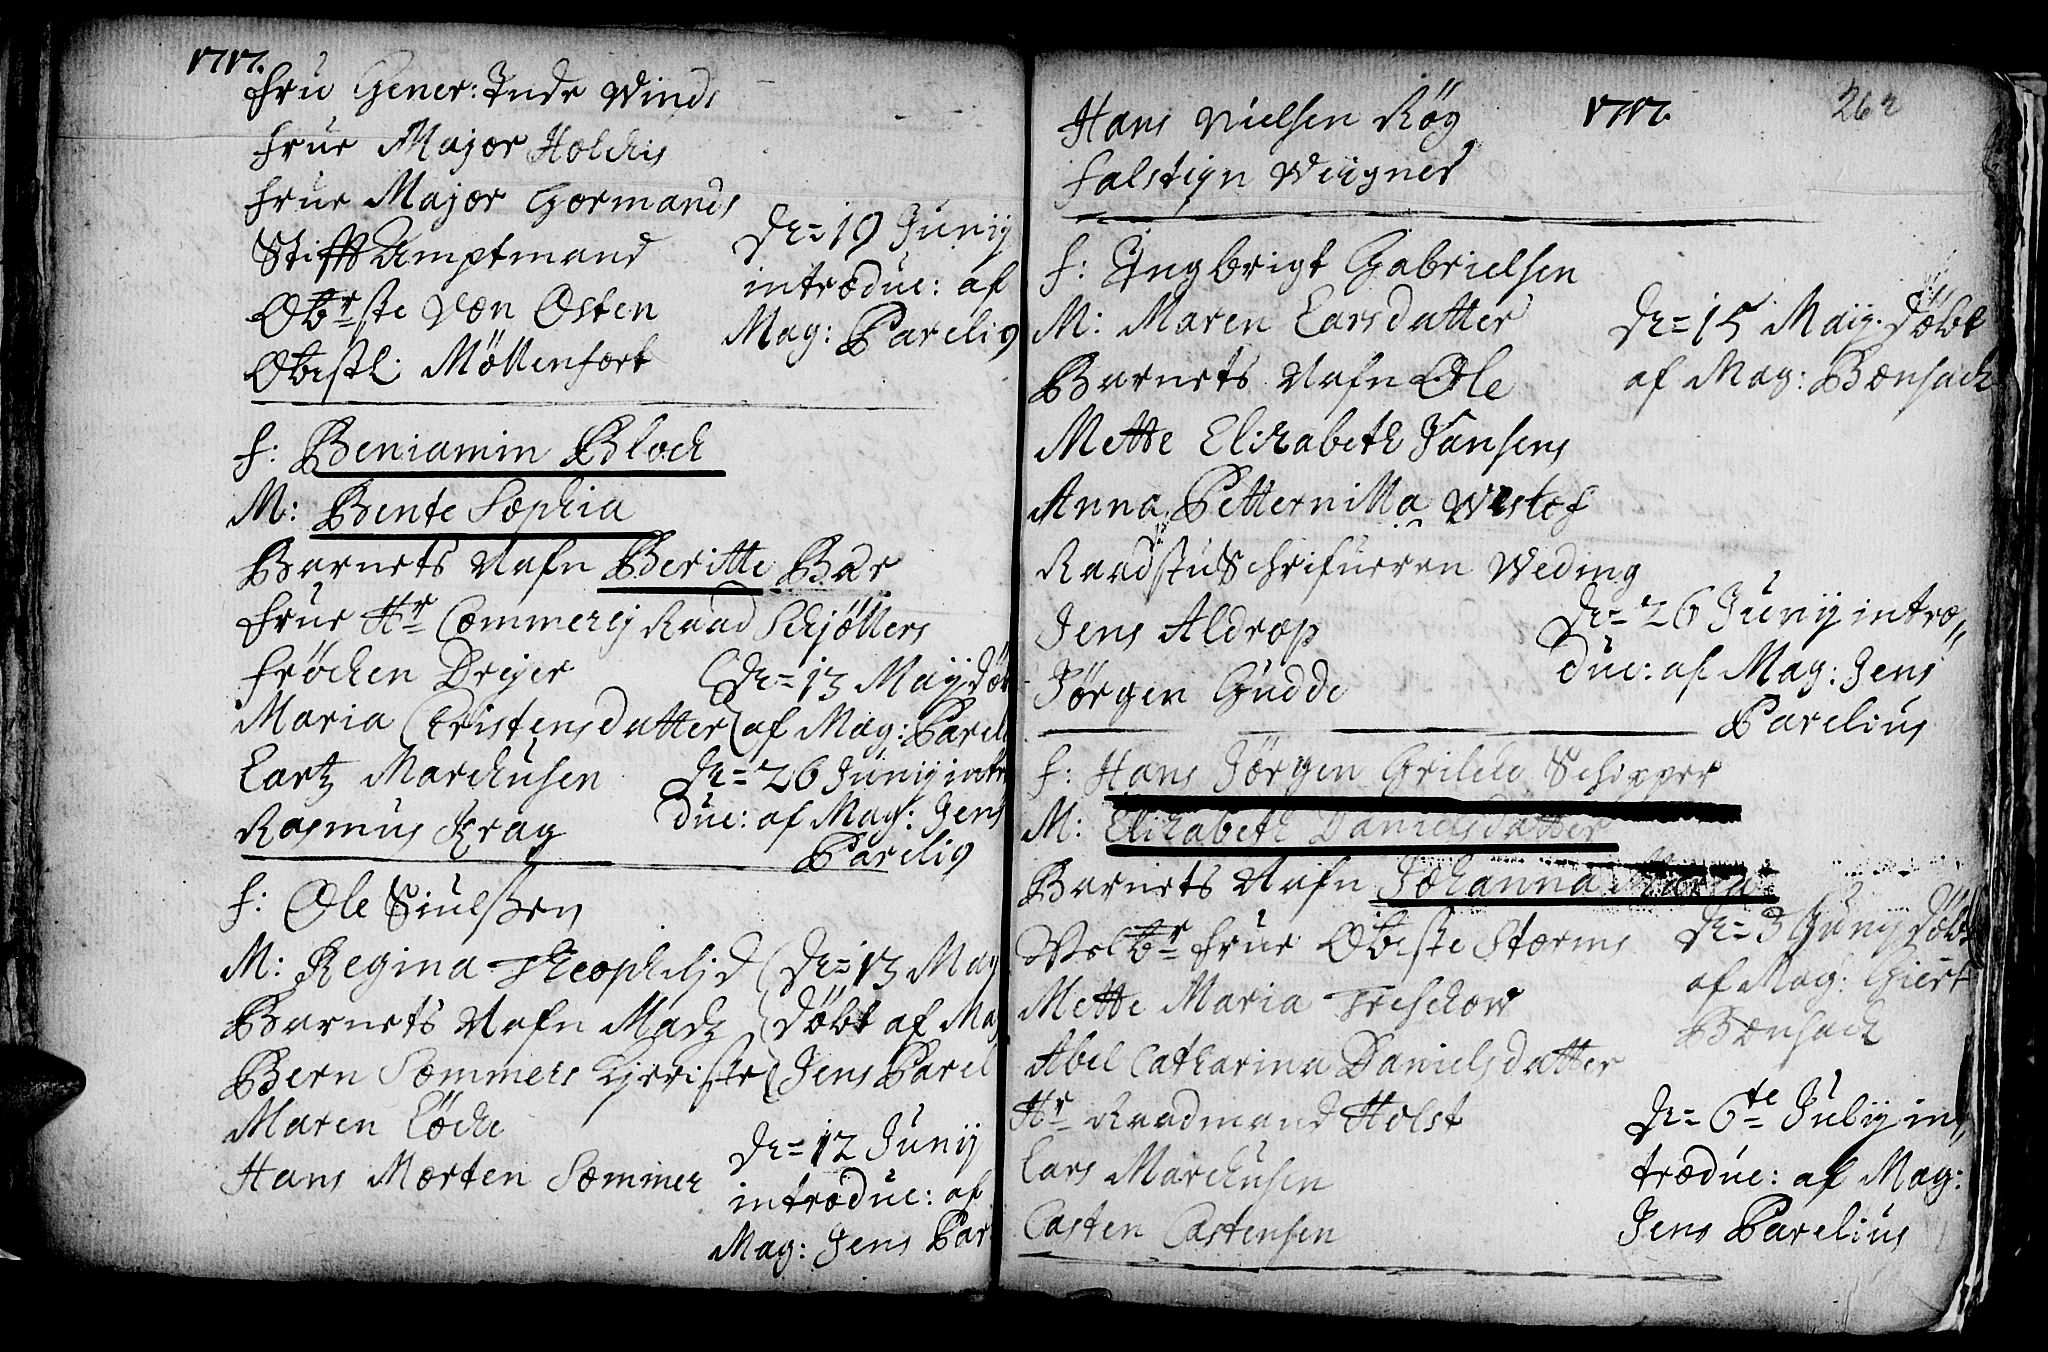 1717.
Fru Gener: Inde Winds
Frue Major Holckis
Frue Major Gormands
Stifft Amptmand
Obrste Von Osten
Obestl: Möllenfort
Dn= 19 Junij
introduc: af
Mag: Pareli9
F: Beniamin Block
M: Bente Sophia
Barnets Nafn Beritte
Frue Hr Commercij Raad Schjøllers
Fröchen Dreyer
Maria Christensdatter
Lartz Marckusen
Rasmus Krag
Dn= 13 Maij döb
af Mag: Pareli
Dn= 26 Junij intro
duc: af Mag: Jens
Pareli9
F: Ole Siulsen
M: Regina Theophelij D
Barnets Nafn Madz
Bern Sommers
Maren Löcke
Hans Morten Sommer
Dn= 13 Maij
döbt af Mag
Jens Pareli
Dn= 12 Junij
introduc: af
Mag: Jens Par
1717.
262
Hans Nielsen Røg
Falstign Wiigner
F: Ingbrigt Gabrielsen
M: Maren Larsdatter
Barnets Nafn Ole
Mette Elizabeth Jansens
Anna Petternilla Westof
Raadstu Schrifueren Weding
Jens Aldrop
Jörgen Gudde
Dn= 15 Maij: döbt
af Mag: Bonsach
Dn= 26 Junij intro„
duc: af Mag: Jens
Parelius
F: Hans Jörgen Grilche Schipper
M: Elizabeth Danielsdatter
Barnets Nafn Johanna Maria
Welbr Frue Obeste Storms
Mette Maria Treschow
Abel Catharina Danielsdatter
Hr Raadmand Holst
Lars Marchusen
Casten Castensen
Dn= 3 Junij döbt
af Mag: Giert
Bonsach
Dn= 6te Julij in„
troduc: af Mag:
Jens Parelius